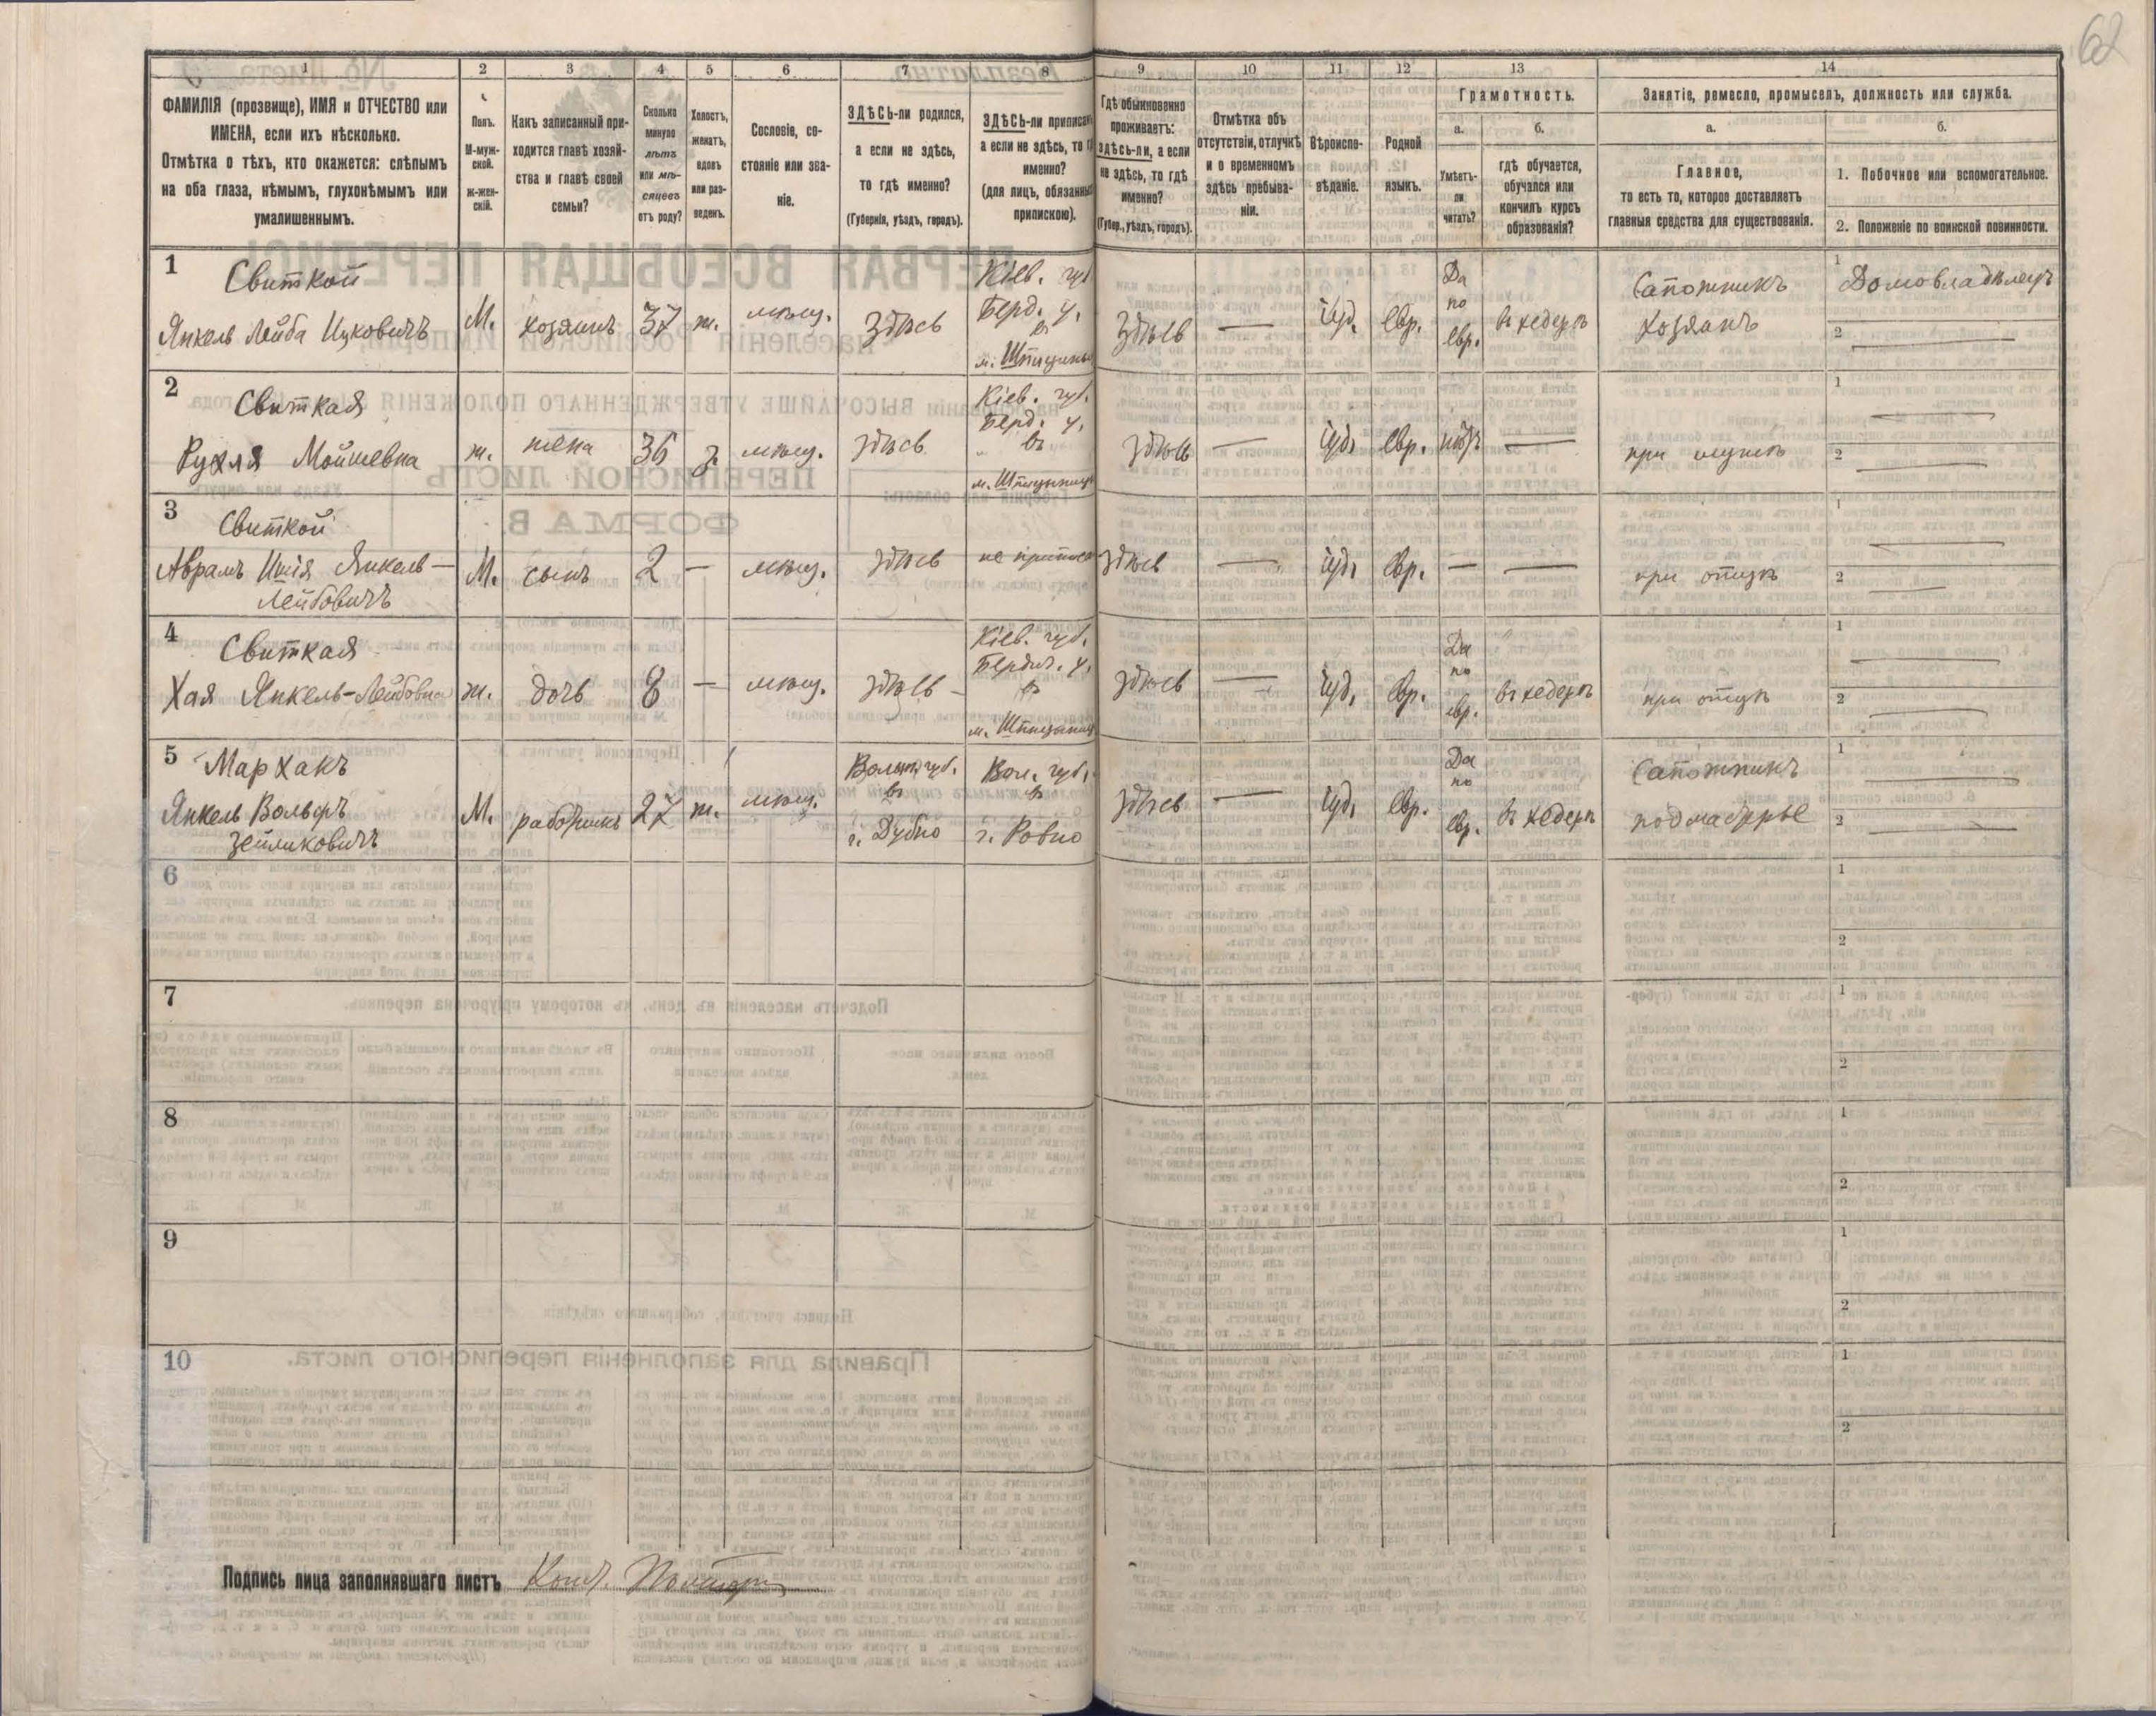 62
1 2 3 4 5 6 7 8 9 10 11 12 13 14
ФАМИЛІЯ (прозвище), ИМЯ и ОТЧЕСТВО или
ИМЕНА, если ихъ нѣсколько.
Отмѣтка о тѣхъ, кто окажется: слѣпымъ
на оба глаза, нѣмымъ, глухонѣмымъ или
умалишеннымъ.
Полъ.
М-муж-
ской.
Ж-жен-
скій.
Какъ записанный при-
ходится главѣ хозяй-
ства и главѣ своей
семьи?
Сколько
минуло
лѣтъ
или мѣ-
сяцевъ
отъ роду?
Холостъ,
женатъ,
вдовъ
или раз-
веденъ.
Сословіе, со-
стояніе или зва-
ніе.
ЗДѢСЬ-ли родился,
а если не здѣсь,
то гдѣ именно?
(Губернія, уѣздъ, городъ).
ЗДѢСЬ-ли приписан
а если не здѣсь, то г
именно?
(для лицъ, обязанны
припискою).
Гдѣ обыкновенно
проживаетъ:
здѣсь-ли, а если
не здѣсь, то гдѣ
именно?
(Губер., уѣздъ, городъ).
Отмѣтка объ
отсутствіи, отлучкѣ
и о временномъ
здѣсь пребыва-
ніи.
Вѣроиспо-
вѣданіе.
Родной
языкъ.
Грамотность.
а.
Умѣетъ-
ли
читать?
б.
гдѣ обучается,
обучался или
кончилъ курсъ
образованія?
Занятіе, ремесло, промыселъ, должность или служба.
а.
Главное,
то есть то, которое доставляетъ
главныя средства для существованія.
б.
1. Побочное или вспомогательное.
2. Положеніе по воинской повинности.
1
Свиткой
Янкель Лейба Ицковичъ
М.
хозяинъ
37
ж.
мѣщ.
Здѣсь
Кіев. губ
Берд. у.
въ
Здѣсь
—
Іуд.
Евр.
Да
по
евр.
въ хедерѣ
Сапожникъ
хозяинъ
1
Домовладѣлецъ
2
2
Свиткая
Рухля Мойшевна
ж.
жена
36
з.
мѣщ.
здѣсь
Кіев. губ.
Берд. у.
въ
здѣсь
—
Іуд.
Евр.
нѣтъ
—
при мужѣ
1
2
3
Свиткой
Аврамъ Иція Янкель-
Лейбовичъ
М.
сынъ
2
—
мѣщ.
здѣсь
не припис
здѣсь
—
Іуд.
Евр.
—
—
при отцѣ
1
2
4
Свиткая
Хая Янкель-Лейбовна
ж.
дочь
8
—
мѣщ.
здѣсь
Кіев. губ.
Бердич. у.
въ
здѣсь
—
Іуд.
Евр.
Да
по
евр.
въ хедерѣ
при отцѣ
1
2
5
Мархакъ
Янкель Вольфъ
Зейликовичъ
М.
работникъ
27
ж.
мѣщ.
Волын. губ.
въ
г. Дубно
Вол. губ.
въ
г. Ровно
здѣсь
—
Іуд.
Евр.
Да
по
евр.
въ хедерѣ
Сапожникъ
подмастерье
1
2
6
1
2
7
1
2
8
1
2
9
1
2
10
1
2
Подпись лица заполнявшаго листъ